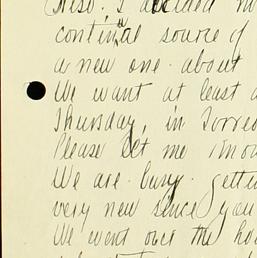 Also. I decided
continual source of
a new one. about
We want at least a
Thursday, in
Please let me know
We are. busy. getting
very new since you
We went over the